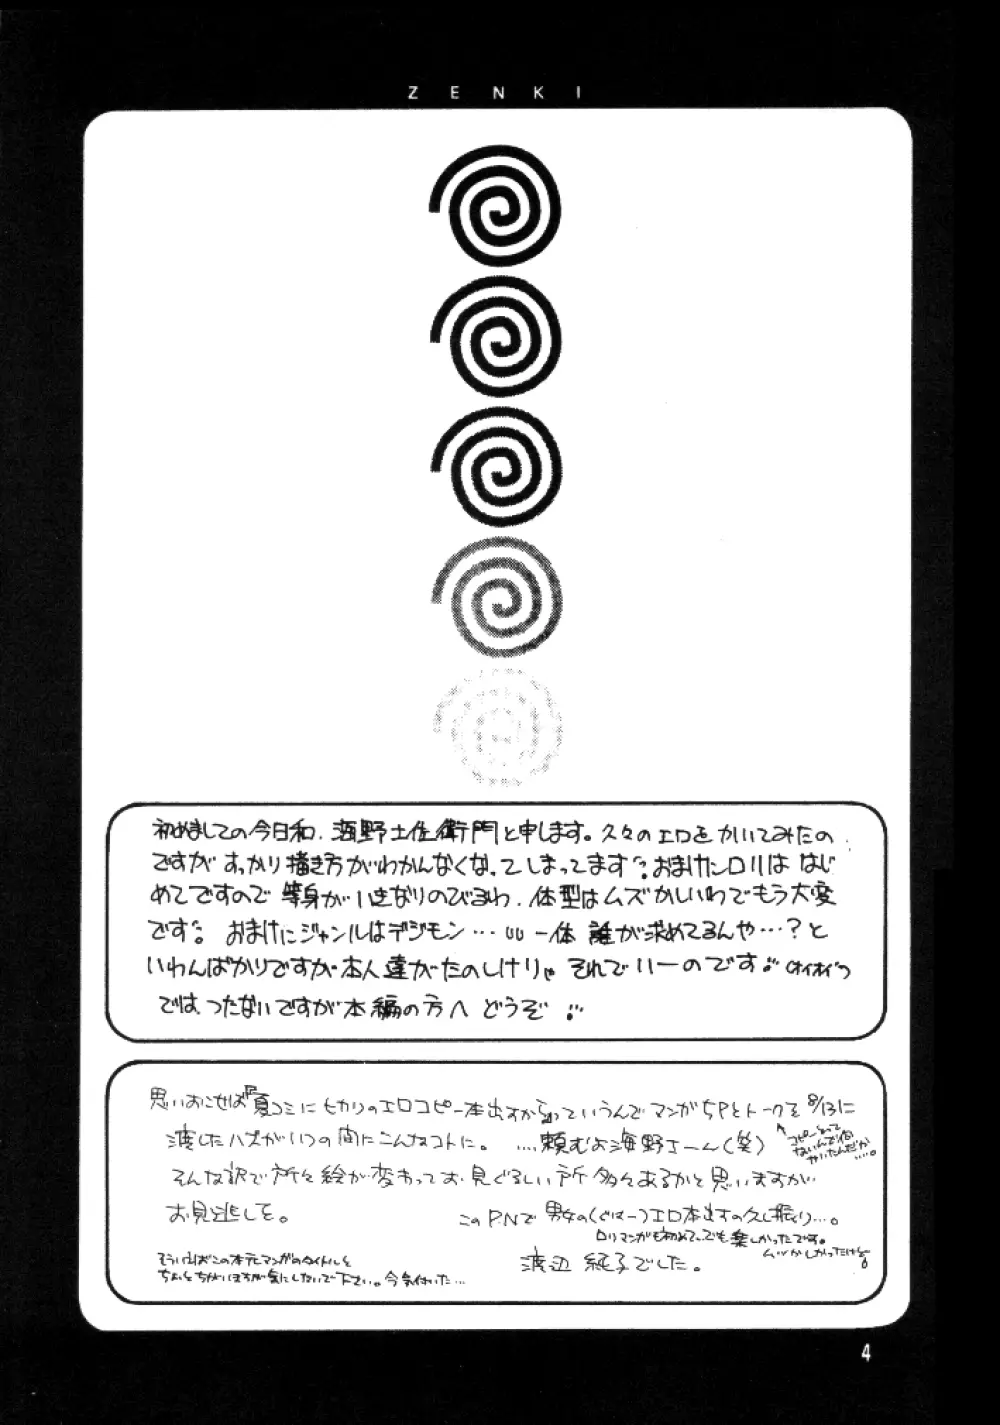 ZENKI
初めましての今日和、海野土佐衛門と申します。久々のエロをかいてみたの
ですがすっかり描き方がわかんなくなってしまってます。おまけにロリははじ
めてですので等身がいきなりのびるわ、体型はムズかしいわでもう大変
です。おまけにジャンルはデジモン…一体誰が求めてるんや…?と
いわんばかりですが本人達がたのしけりゃそれでいーのです。(オイオイ)
では、つたないですが本編の方へどうぞ。
思いおこせば『夏コミにヒカリのエロコピー本出すから』っていうんでマンガ5PとトークEを8/13に
渡したハズがいつの間にこんなコトに。....頼むよ海野さーん(笑)
コピーってないんで何かいたんだか....。
そんな訳で所々絵が変わってお見ぐるしい所多々あるかと思いますが
お見逃しを。
このP.Nで男女の(ぐはーっ)エロ本出すの久し振り…。
ロリマンガも初めて。でも楽しかったです。
ムツかしかったけど
渡辺純子でした。
そういえばこの本元マンガのタイトルと
ちょっとちがいますが気にしないで下さい。今気付いた…
4